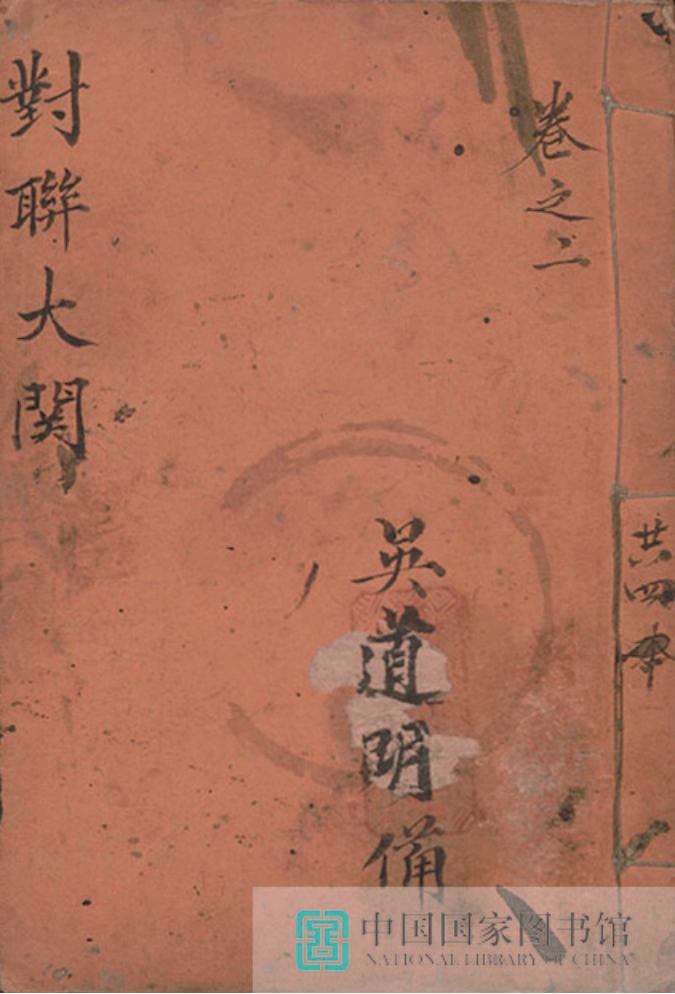 共四本
卷之二
吳道明備
對聯大関
中国国家图书馆
NATIONAL LIBRARY OF CHINA